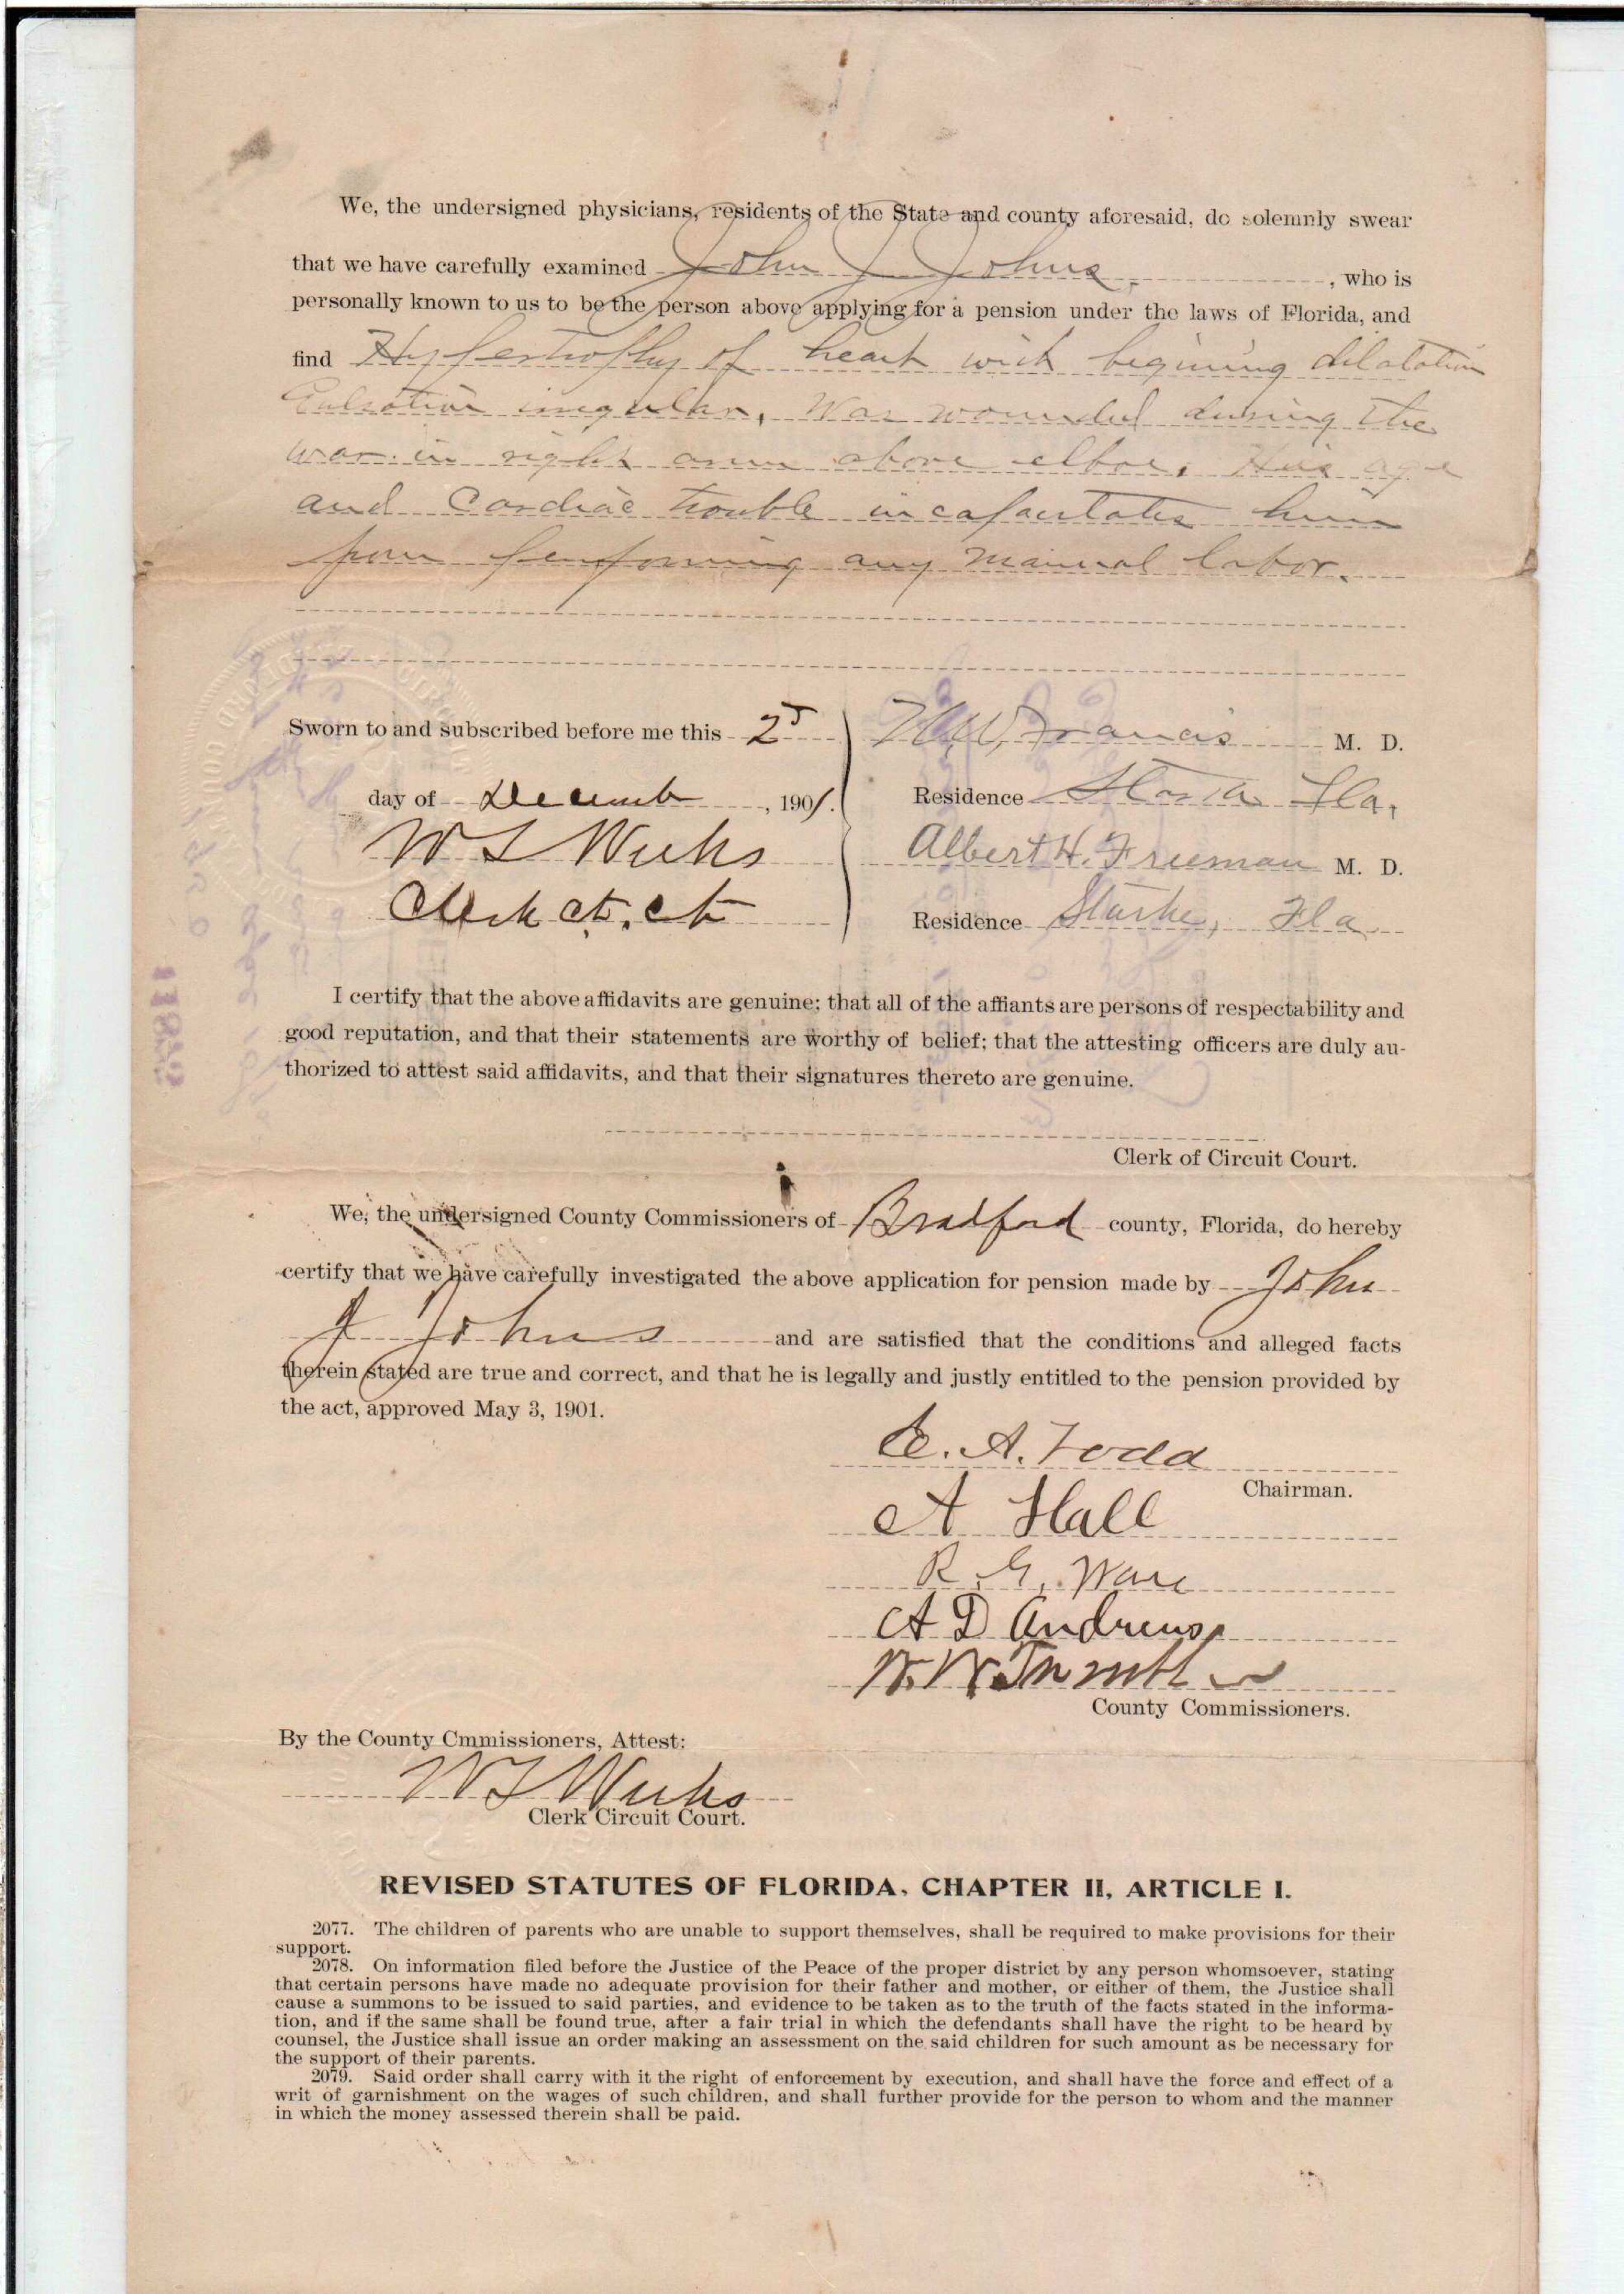 We, the undersigned physicians, residents of the State and county aforesaid, do solemnly swear
that we have carefully examined John J Johns, who is
personally known to us to be the person above applying for a pension under the laws of Florida, and
find Hypertrophy of heart with begining dilatation
Pulsation iregular, Was wounded during the
war in right arm above elbow, His age
and Cardiac trouble incapacitates him
from performing any manual labor.
Sworn to and subscribed before me this 2d
day of December, 1901.
W L Weeks
Clerk Ct. Ct
Francis M. D.
Residence Starke Fla,
Albert H. Freeman M. D.
Residence Starke, Fla
I certify that the above affidavits are genuine; that all of the affiants are persons of respectability and
good reputation, and that their statements are worthy of belief; that the attesting officers are duly au-
thorized to attest said affidavits, and that their signatures thereto are genuine.
Clerk of Circuit Court.
We, the undersigned County Commissioners of Bradford county, Florida, do hereby
certify that we have carefully investigated the above application for pension made by John
J Johns and are satisfied that the conditions and alleged facts
therein stated are true and correct, and that he is legally and justly entitled to the pension provided by
the act, approved May 3, 1901.
E. A. Todd
Chairman.
A Hall
R. G. Ware
A D Andrews
W. W.
County Commissioners.
By the County Cmmissioners, Attest:
W L Weeks
Clerk Circuit Court.
REVISED STATUTES OF FLORIDA, CHAPTER II, ARTICLE I.
2077. The children of parents who are unable to support themselves, shall be required to make provisions for their
support.
2078. On information filed before the Justice of the Peace of the proper district by any person whomsoever, stating
that certain persons have made no adequate provision for their father and mother, or either of them, the Justice shall
cause a summons to be issued to said parties, and evidence to be taken as to the truth of the facts stated in the informa-
tion, and if the same shall be found true, after a fair trial in which the defendants shall have the right to be heard by
counsel, the Justice shall issue an order making an assessment on the said children for such amount as be necessary for
the support of their parents.
2079. Said order shall carry with it the right of enforcement by execution, and shall have the force and effect of a
writ of garnishment on the wages of such children, and shall further provide for the person to whom and the manner
in which the money assessed therein shall be paid.